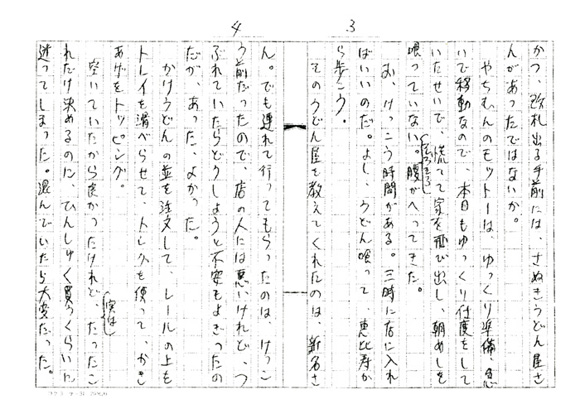 3
かつ、改札出る手前には、さぬきうどん屋さ
んがあったではないか。
やちむんのモットーは、ゆっくり準備、急
いで移動なので、本日もゆっくり仕度をして
いたせいで、慌てて家を飛び出し、朝めしを
喰っていない。腹がへってきた。
お、けっこう時間がある。三時に店に入れ
ばいいのだ。よし、うどん喰って 恵比寿か
ら歩こう。
そのうどん屋を教えてくれたのは、新名さ
4
ん。でも連れて行ってもらったのは、けっこ
う前だったので、店の人には悪いけれど、つ
ぶれていたらどうしようと不安もよぎったの
だが、あった、よかった。
かけうどんの並を注文して、レールの上を
トレイを滑べらせて、トングを使って、かき
あげをトッピング。
空いていたから良かったけれど、たったこ
れだけ決めるのに、ひんしゅく買うくらいに
迷ってしまった。混んでいたら大変だった。